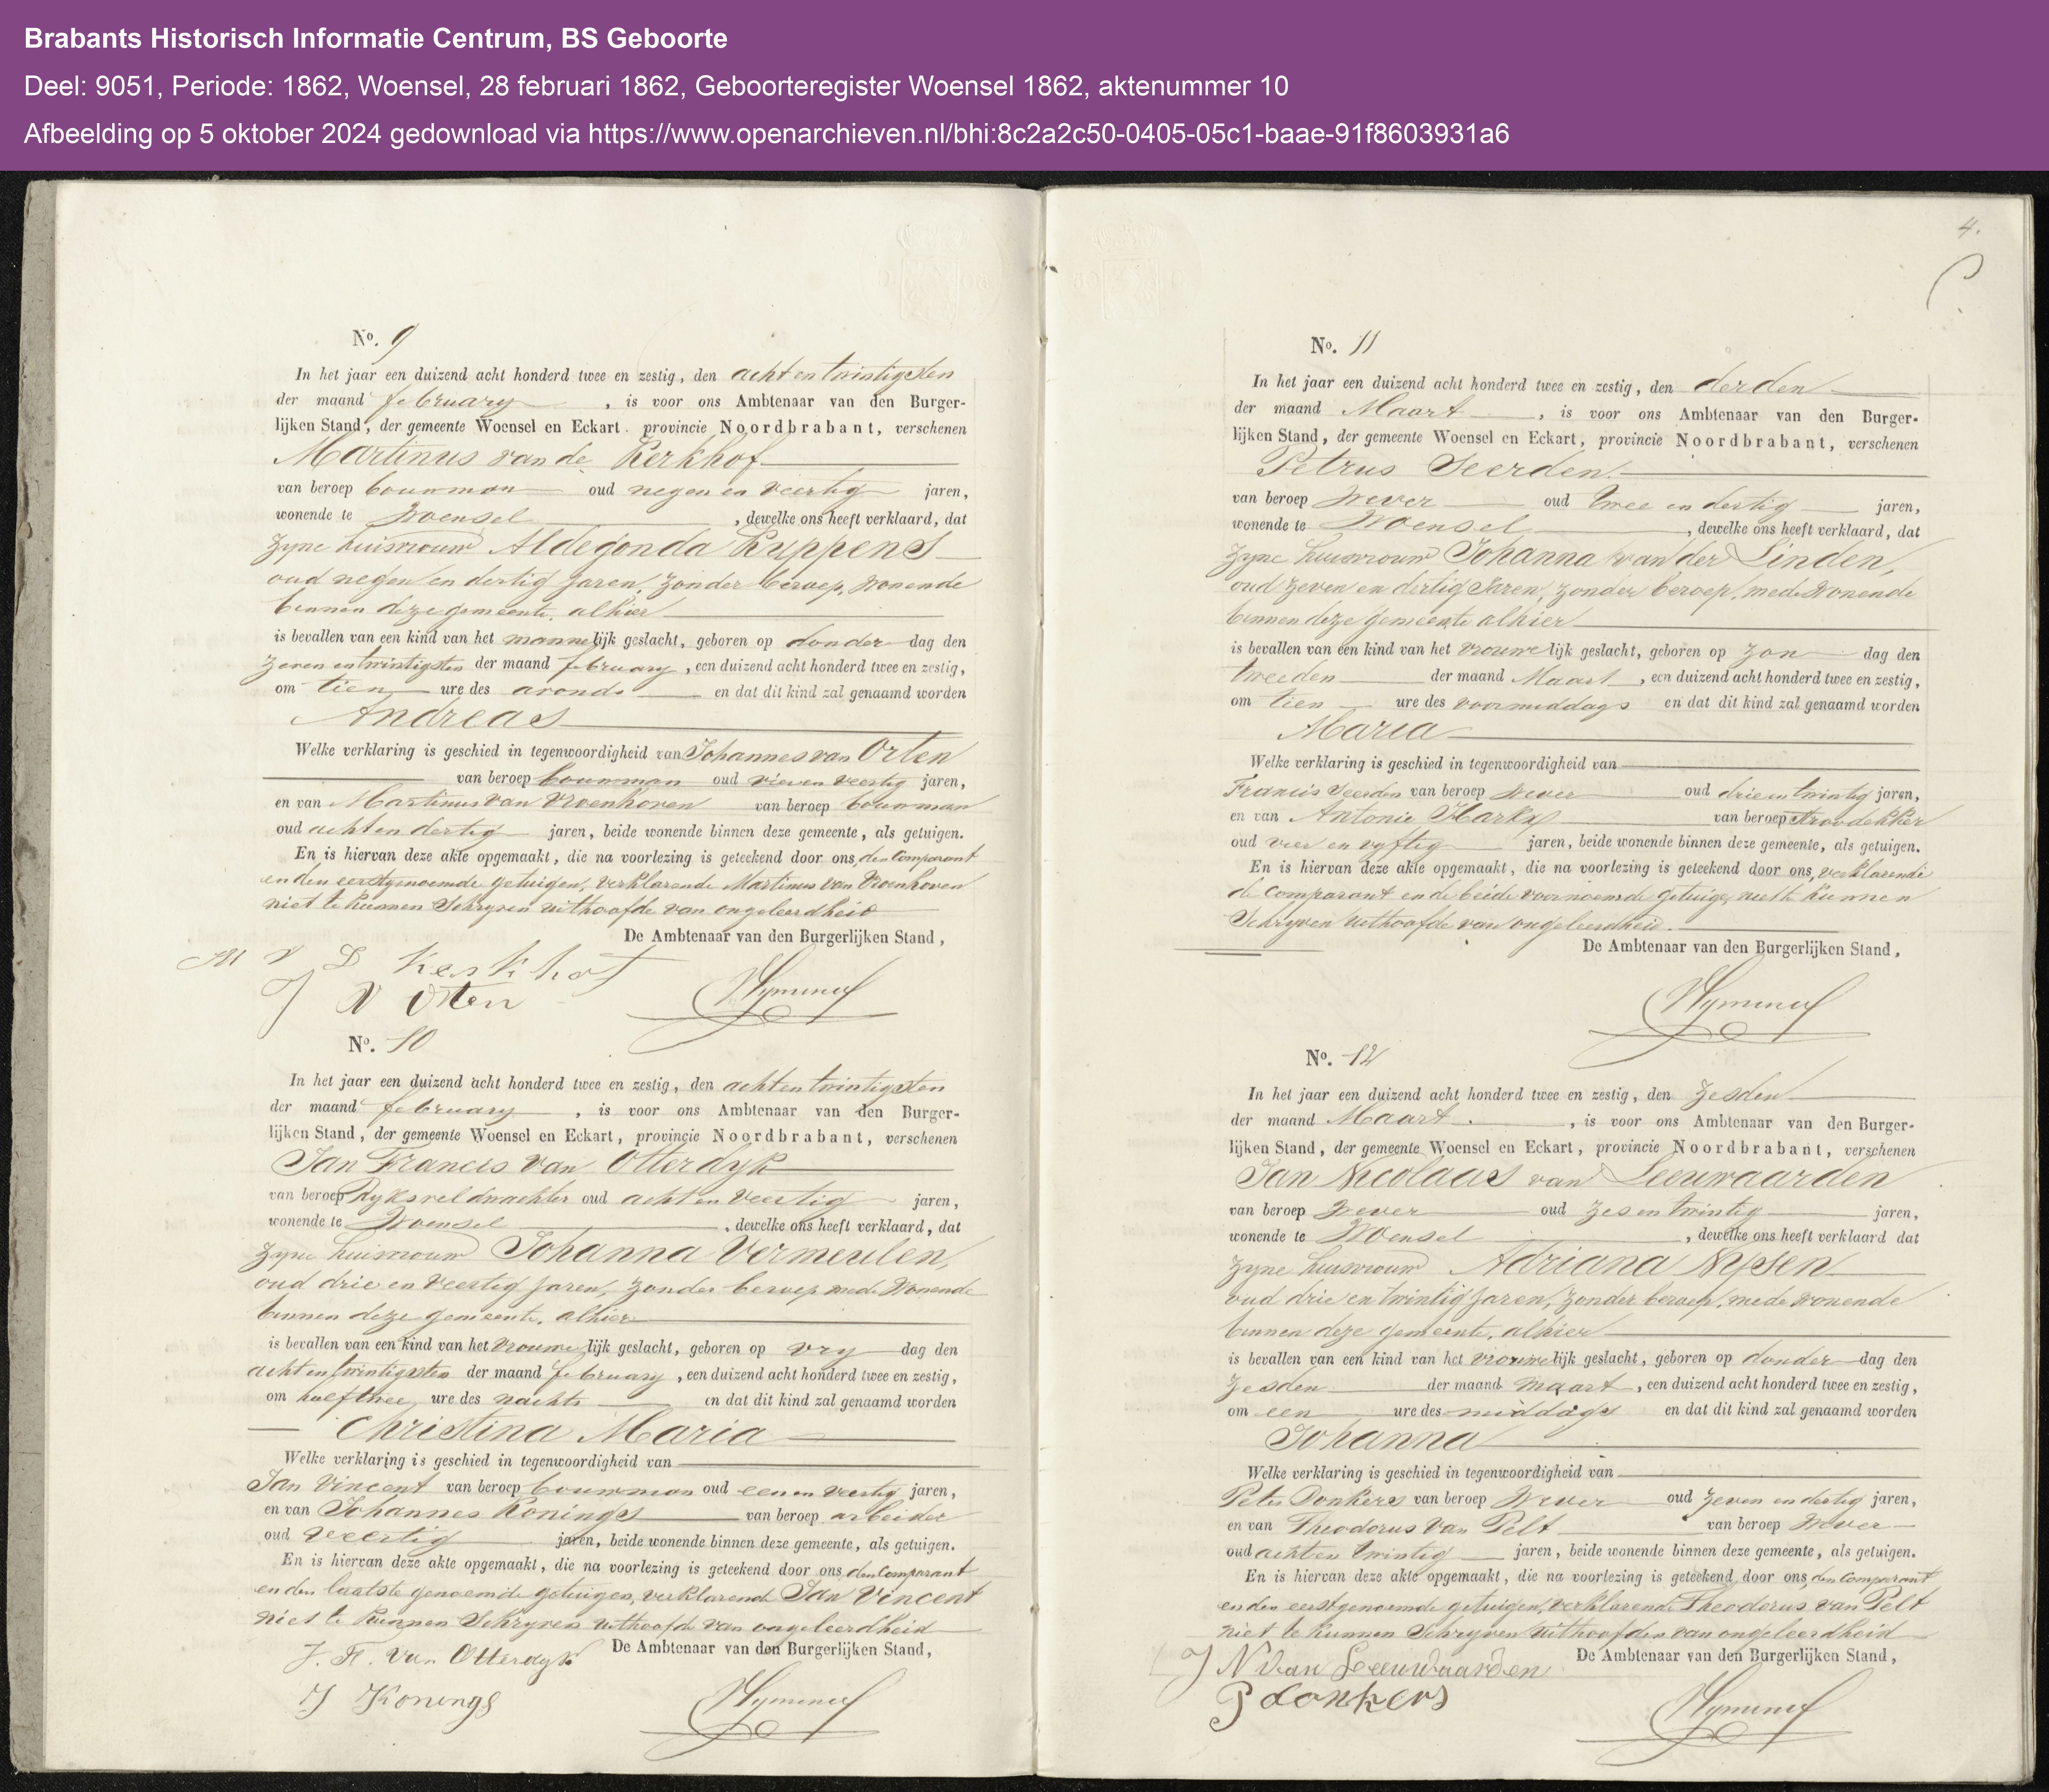 Brabants Historisch Informatie Centrum, BS Geboorte
Deel: 9051, Periode: 1862, Woensel, 28 februari 1862, Geboorteregister Woensel 1862, aktenummer 10
Afbeelding op 5 oktober 2024 gedownload via https://www.openarchieven.nl/bhi:8c2a2c50-0405-05c1-baae-91f8603931a6
No. 9
In het jaar een duizend acht honderd twee en zestig, den acht en twintigsten
der maand february, is voor ons Ambtenaar van den Burger-
lijken Stand, der gemeente Woensel en Eckart. provincie Noordbrabant, verschenen
Martinus van de Kerkhof
van beroep bouwman oud negen en veertig jaren,
wonende te Woensel, dewelke ons heeft verklaard, dat
zyne huisvrouw Aldegonda Kuppens
oud negen en dertig jaren, zonder beroep, wonende
binnen deze gemeente, alhier
is bevallen van een kind van het mannelijk geslacht, geboren op donderdag den
zeven en twintigsten der maand february, een duizend acht honderd twee en zestig,
om tien ure des avonds en dat dit kind zal genaamd worden
Andreas
Welke verklaring is geschied in tegenwoordigheid van Johannes van Orten
van beroep bouwman oud vier en veertig jaren,
en van Martinus van Vroenhoven van beroep bouwman
oud acht en dertig jaren, beide wonende binnen deze gemeente, als getuigen.
En is hiervan deze akte opgemaakt, die na voorlezing is geteekend door ons, den Comparant
en den eerstgenoemde getuigen, verklarende Martinus van Vroenhoven
niet te kunnen Schryven uithoofde van ongeleerdheid
De Ambtenaar van den Burgerlijken Stand,
M V D Kerkhof
J V Orten
No. 10
In het jaar een duizend acht honderd twee en zestig, den acht en twintigsten
der maand february, is voor ons Ambtenaar van den Burger-
lijken Stand, der gemeente Woensel en Eckart, provincie Noordbrabant, verschenen
Jan Francis van Otterdyk
van beroep Ryksveldwachter oud acht en veertig jaren,
wonende te Woensel, dewelke ons heeft verklaard, dat
zyne huisvrouw Johanna Vermeulen,
oud drie en veertig jaren, zonder beroep mede wonende
binnen deze gemeente, alhier
is bevallen van een kind van het vrouwelijk geslacht, geboren op vrydag den
acht en twintigsten der maand february, een duizend acht honderd twee en zestig,
om half twee ure des nachts en dat dit kind zal genaamd worden
Christina Maria
Welke verklaring is geschied in tegenwoordigheid van
Jan Vincent van beroep bouwman oud een en veertig jaren,
en van Johannes Konings van beroep arbeider
oud veertig jaren, beide wonende binnen deze gemeente, als getuigen.
En is hiervan deze akte opgemaakt, die na voorlezing is geteekend door ons den Comparant
en den laatste genoemde getuigen, verklarend Jan Vincent
niet te kunnen Schryven uithoofde van ongeleerdheid
De Ambtenaar van den Burgerlijken Stand,
J. F. Van Otterdyk
J Konings
4.
No. 11
In het jaar een duizend acht honderd twee en zestig, den derden
der maand Maart, is voor ons Ambtenaar van den Burger-
lijken Stand, der gemeente Woensel en Eckart, provincie Noordbrabant, verschenen
Petrus Seerden
van beroep Wever oud twee en dertig jaren,
wonende te Woensel, dewelke ons heeft verklaard, dat
zyne huisvrouw Johanna van der Linden,
oud zeven en dertig Jaren, zonder beroep, mede wonende
binnen deze gemeente alhier
is bevallen van een kind van het vrouwelijk geslacht, geboren op zondag den
tweeden der maand Maart, een duizend acht honderd twee en zestig,
om tien ure des voormiddags en dat dit kind zal genaamd worden
Maria
Welke verklaring is geschied in tegenwoordigheid van
Francis Seerden van beroep Wever oud drie en twintig jaren,
en van Antonie Harkx van beroep Stroodekker
oud vier en vyftig jaren, beide wonende binnen deze gemeente, als getuigen.
En is hiervan deze akte opgemaakt, die na voorlezing is geteekend door ons, verklarende
de Comparant en de beide voornoemde getuige, niet te kunnen
Schryven uithoofde van ongeleerdheid.
De Ambtenaar van den Burgerlijken Stand,
No. 12
In het jaar een duizend acht honderd twee en zestig, den Zesden
der maand Maart, is voor ons Ambtenaar van den Burger-
lijken Stand, der gemeente Woensel en Eckart, provincie Noordbrabant, verschenen
Jan Nicolaas van Leeuwaarden
van beroep Wever oud zes en twintig jaren,
wonende te Woensel, dewelke ons heeft verklaard dat
zyne huisvrouw Adriana Nysen
oud drie en twintig jaren, zonder beroep, mede wonende
binnen deze gemeente, alhier
is bevallen van een kind van het vrouwelijk geslacht, geboren op donderdag den
Zesden der maand maart, een duizend acht honderd twee en zestig,
om een ure des middags en dat dit kind zal genaamd worden
Johanna
Welke verklaring is geschied in tegenwoordigheid van
Peter Donkers van beroep Wever oud zeven en dertig jaren,
en van Theodorus van Pelt van beroep Wever
oud acht en twintig jaren, beide wonende binnen deze gemeente, als getuigen.
En is hiervan deze akte opgemaakt, die na voorlezing is geteekend door ons, den Comparant
en den eerstgenoemde getuigen, verklarende Theodorus van Pelt
niet te kunnen Schryven uithoofden van ongeleerdheid
De Ambtenaar van den Burgerlijken Stand,
J N van Leeuwaarden
P donkers